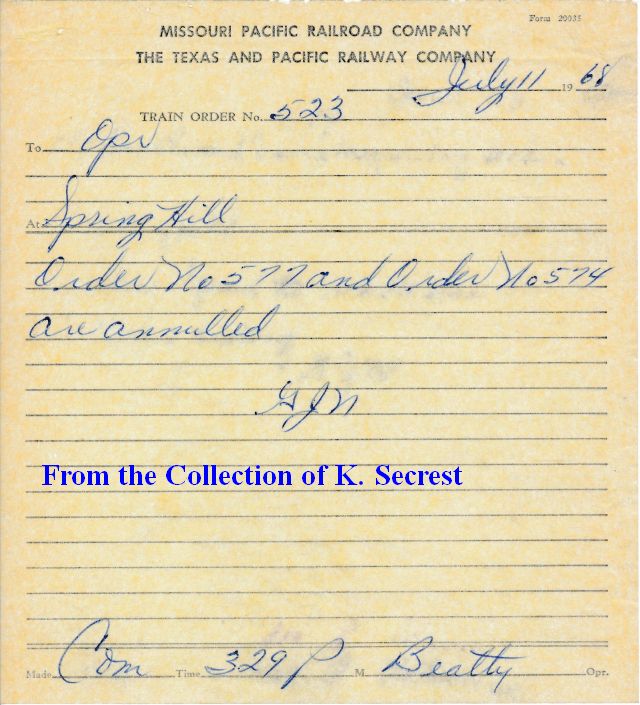 Form 20035
MISSOURI PACIFIC RAILROAD COMPANY
THE TEXAS AND PACIFIC RAILWAY COMPANY
July 11 1968
TRAIN ORDER No. 523
To Opr
At Spring Hill
Order No 577 and Order No 574
are annulled
GJN
From the Collection of K. Secrest
Made Com Time 329 P M. Beatty Opr.